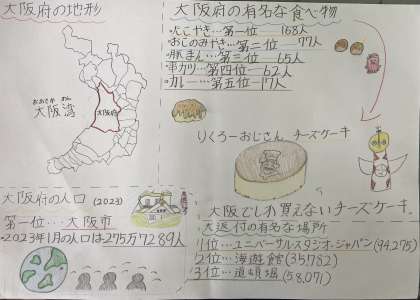 大阪府の地形
おおさか わん
大阪湾
大阪府
大阪府の有名な食べ物
・たこやき…第一位 168人
・おこのみやき…第二位 77人
・豚まん…第三位 65人
・串カツ…第四位 62人
・カレー…第五位 17人
りくろーおじさん チーズケーキ
大阪でしか買えないチーズケーキ.
大阪府の人口 (2023)
第一位…大阪市
・2023年1月の人口は275万7289人
・大阪府の有名な場所
1位…ユニバーサルスタジオ・ジャパン(94,275)
2位…海遊館(35,782)
3位…道頓堀(58,071)